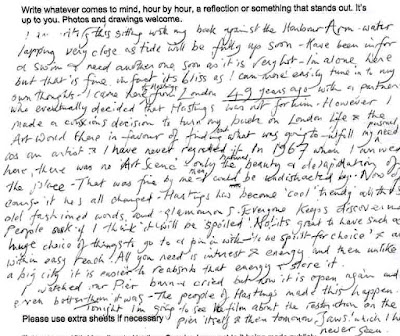 Write whatever comes to mind, hour by hour, a reflection or something that stands out. It's
up to you. Photos and drawings welcome.
I am sitting with my book against the Harbour Arm - water
lapping very close as tide will be fully up soon - Have been in for
a swim & need another one soon as it is very hot - I'm alone here
but that is fine in fact its bliss as I can more easily tune in to my
own thoughts - I came here from London 49 years ago with a partner
to Hastings
who eventually decided that Hastings was not for him. However I
made a conscious decision to turn my back on London Life & the
Art World there in favour of finding what was going to fulfil my need
as an artist & I have never regretted it. In 1967 when I arrived
here, there was no 'Art Scene' - only the natural beauty & dilapidation of
the place - That was fine by me - I could be undistracted by Now of
course it has all changed - Hastings has become 'cool' 'trendy' all those
old fashioned words, and glamorous - Everyone keeps discovering
People ask if I think it will be spoiled. No its great to have such a
huge choice of things to go to & join in with - 'to be spoilt for choice' &
within easy reach. All you need is interest & energy and then unlike
a big city it is easier to reabsorb that energy & store it.
I watched our Pier burn & cried but now it is open again and
even better than it was - The people of Hastings made this happen -
Tonight I'm going to see the film about the restoration on the
pier itself & then tomorrow Jaws, which I have
never seen.
Please use extra sheets if necessary